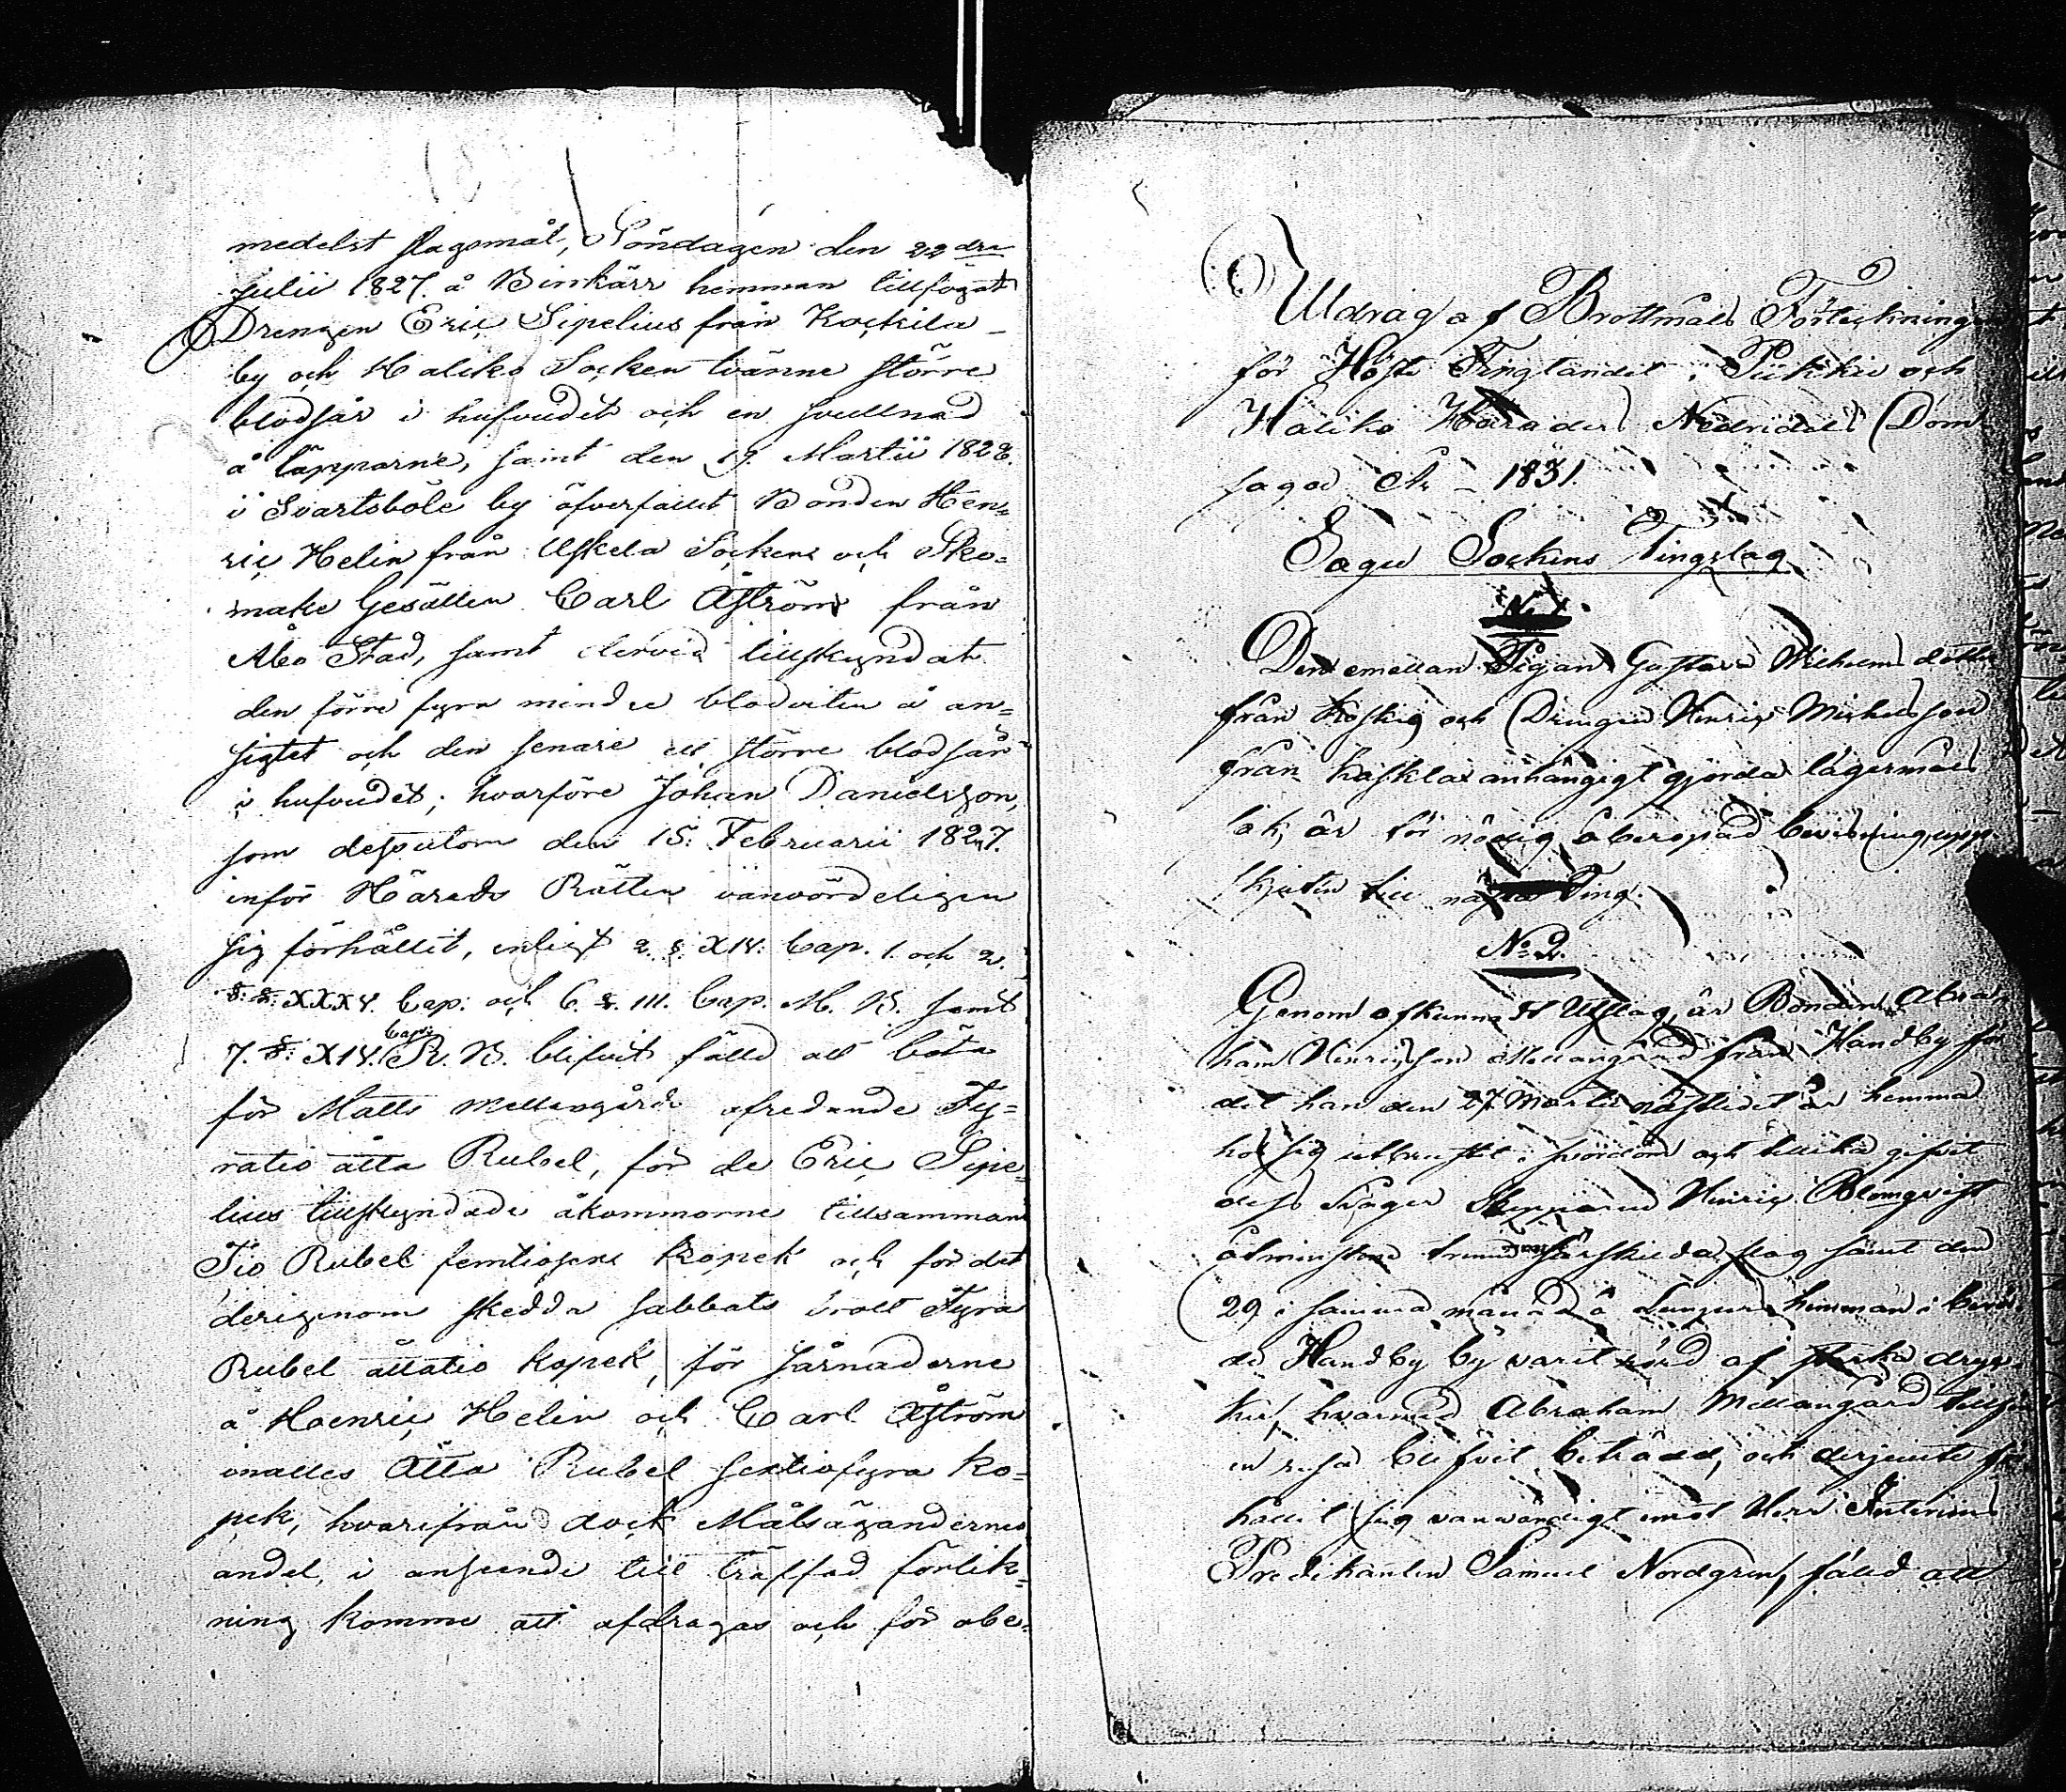 medelst slagsmål, Söndagen den 22dra
Julii 1827. å Binkärr hemman tillfogat
Drengen Eric Sipelius från Kockila
by och Haliko Socken tvänne större
blodsår i hufvudet och en svullnad
å läpparne, samt den 19. Martii 1828.
i Svartsböle by öfverfallit Bonden Hen=
ric Helin från Uskela Sockens och Sko=
make Gesällen Carl Åström från
Åbo Stad, samt dervid tillskyndat
den förre fyra mindre blodviten å an=
sigtet och den senare ett större blodsår
i hufvudet; hvarföre Johan Danielsson,
som dessutom den 15. Februarii 1827.
inför Härads Rätten vanvördeligen
sig förhållit, enligt 2. §. XIV. Cap. 1. och 2.
§. §. XXXV. Cap. och 6. §. III. Cap. M. B. samt
7. §. XIV. Cap. R. B. blifvit fälld att böta
för Matts Mellangårds afredande Fy=
ratio åtta Rubel, för de Eric Sipe=
lius tillskyndade åkommorne tillsammans
Tio Rubel femtiosex kopek och för det
derigenom skedda sabbats brott Fyra
Rubel åttatio kopek, för sårnaderne
å Henric Helin och Carl Åström
önalles Åtta Rubel sextiofyra ko=
pek, hvarifrån dock Målsägandernes
andel, i anseende till träffad förlik=
ning komme att afdragas och för obe=
Utdrag af Brottmåls Förteckningen
för Höste Tingtanded i Piikkie och
Haliko Härader Nedridels Dom
sagod År 1831.
Sagu Sockens Tingslag
No 1.
Den emellan Pigan Gustava Michelsdotter
från Koskis och Drengen Henric Michelsson
från Haskla anhängigt gjorda lägersmåls
sak, är för nödig åberopad bevisning, upp
skjuten till nästa Ting.
No 2.
Genom afkunnadt Utslag, är Bonden Abra
ham Henricsson Mellangård från Handby för
det han den 27 Martii nästledet år hemma
hos sig utbrustit i svordom och tillika gifvit
dess Svåger Skepparen Henric Blomqvist
åtminstone trenne särskilda slag samt den
29 i samma månad å hemman i berör
de Handby by varit rörd af starka dryc
ker, hvarmed Abraham Mellangård
en resa blifvit beträdd, och derjemte för
hållit sig vanvördigt emot Herr Interims
Predikanten Samuel Nordgren, fälld att